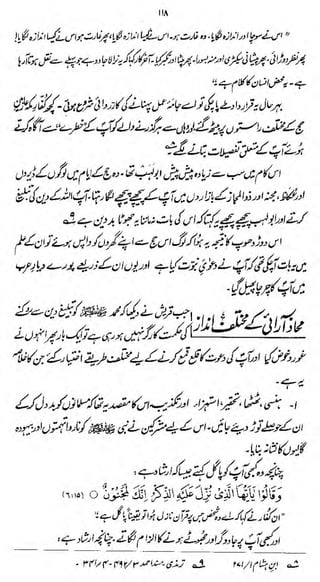 ۱۱۸
”اس نے سوچا اور اندازہ لگایا۔ وہ غارت ہو۔ اس نے کیسا اندازہ لگایا، پھر غارت ہو اس نے کیسا اندازہ لگایا!
پھر نظر دوڑائی، پھر پیشانی سکیڑی اور منہ بسورا، پھر پلٹا اور تکبر کیا۔ آخر کار کہا کہ یہ نرالا جادو ہے جو پہلے سے نقل ہوتا آرہا
ہے۔ یہ محض انسان کا کلام ہے۔“
بہرحال یہ قرار داد طے پا چکی تو اسے جامۂ عمل پہنانے کی کارروائی شروع ہوئی۔ کچھ کفار مکہ عازمین
حج کے مختلف راستوں پر بیٹھ گئے اور وہاں سے ہر گزرنے والے کو آپ کے خطرے سے آگاہ کرتے
ہوئے آپ کے متعلق تفصیلات بتانے لگے۔
اس کام میں سب سے زیادہ پیش پیش ابولہب تھا۔ وہ حج کے ایام میں لوگوں کے ڈیروں
اور عکاظ، مجنہ اور ذوالمجاز کے بازاروں میں آپ کے پیچھے پیچھے لگا رہتا۔ آپ اللہ کے دین کی تبلیغ
کرتے اور ابولہب پیچھے پیچھے یہ کہتا کہ اس کی بات نہ ماننا یہ جھوٹا بددین ہے۔
اس دوڑ دھوپ کا نتیجہ یہ ہوا کہ لوگ اس حج سے اپنے گھروں کو واپس ہوئے تو ان کے علم
میں یہ بات آچکی تھی کہ آپ نے دعویٰ نبوت کیا ہے اور یوں ان کے ذریعے پورے دیار عرب
میں آپ کا چرچا پھیل گیا۔
محاذ آرائی کے مختلف انداز جب قریش نے دیکھا کہ محمد ﷺ کو تبلیغ دین سے روکنے
کی حکمت کارگر نہیں ہو رہی ہے تو ایک بار پھر انہوں نے
غور و خوض کیا اور آپ کی دعوت کا قلع قمع کرنے کے لیے مختلف طریقے اختیار کئے جن کا خلاصہ
یہ ہے۔
۱۔ ہنسی، ٹھٹھا، تحقیر، استہزاء اور تکذیب۔ اس کا مقصد یہ تھا کہ مسلمانوں کو بددل کر کے
ان کے حوصلے توڑ دیئے جائیں۔ اس کے لیے مشرکین نے نبی ﷺ کو ناروا تہمتوں اور بیہودہ
گالیوں کا نشانہ بنایا۔
چنانچہ وہ کبھی آپ کو پاگل کہتے جیسا کہ ارشاد ہے:
وَقَالُوا يٰٓاَيُّهَا الَّذِيْ نُزِّلَ عَلَيْهِ الذِّكْرُ اِنَّكَ لَمَجْنُوْنٌ ○ (۶:۱۵)
”ان کفار نے کہا کہ اے وہ شخص جس پر قرآن نازل ہوا تو یقیناً پاگل ہے“
اور کبھی آپ پر جادوگر اور جھوٹے ہونے کا الزام لگاتے۔ چنانچہ ارشاد ہے:
ابن ہشام ۲۷۱/۱ ترمذی، مسند احمد ۴۹۲/۳، ۳۴۱/۴